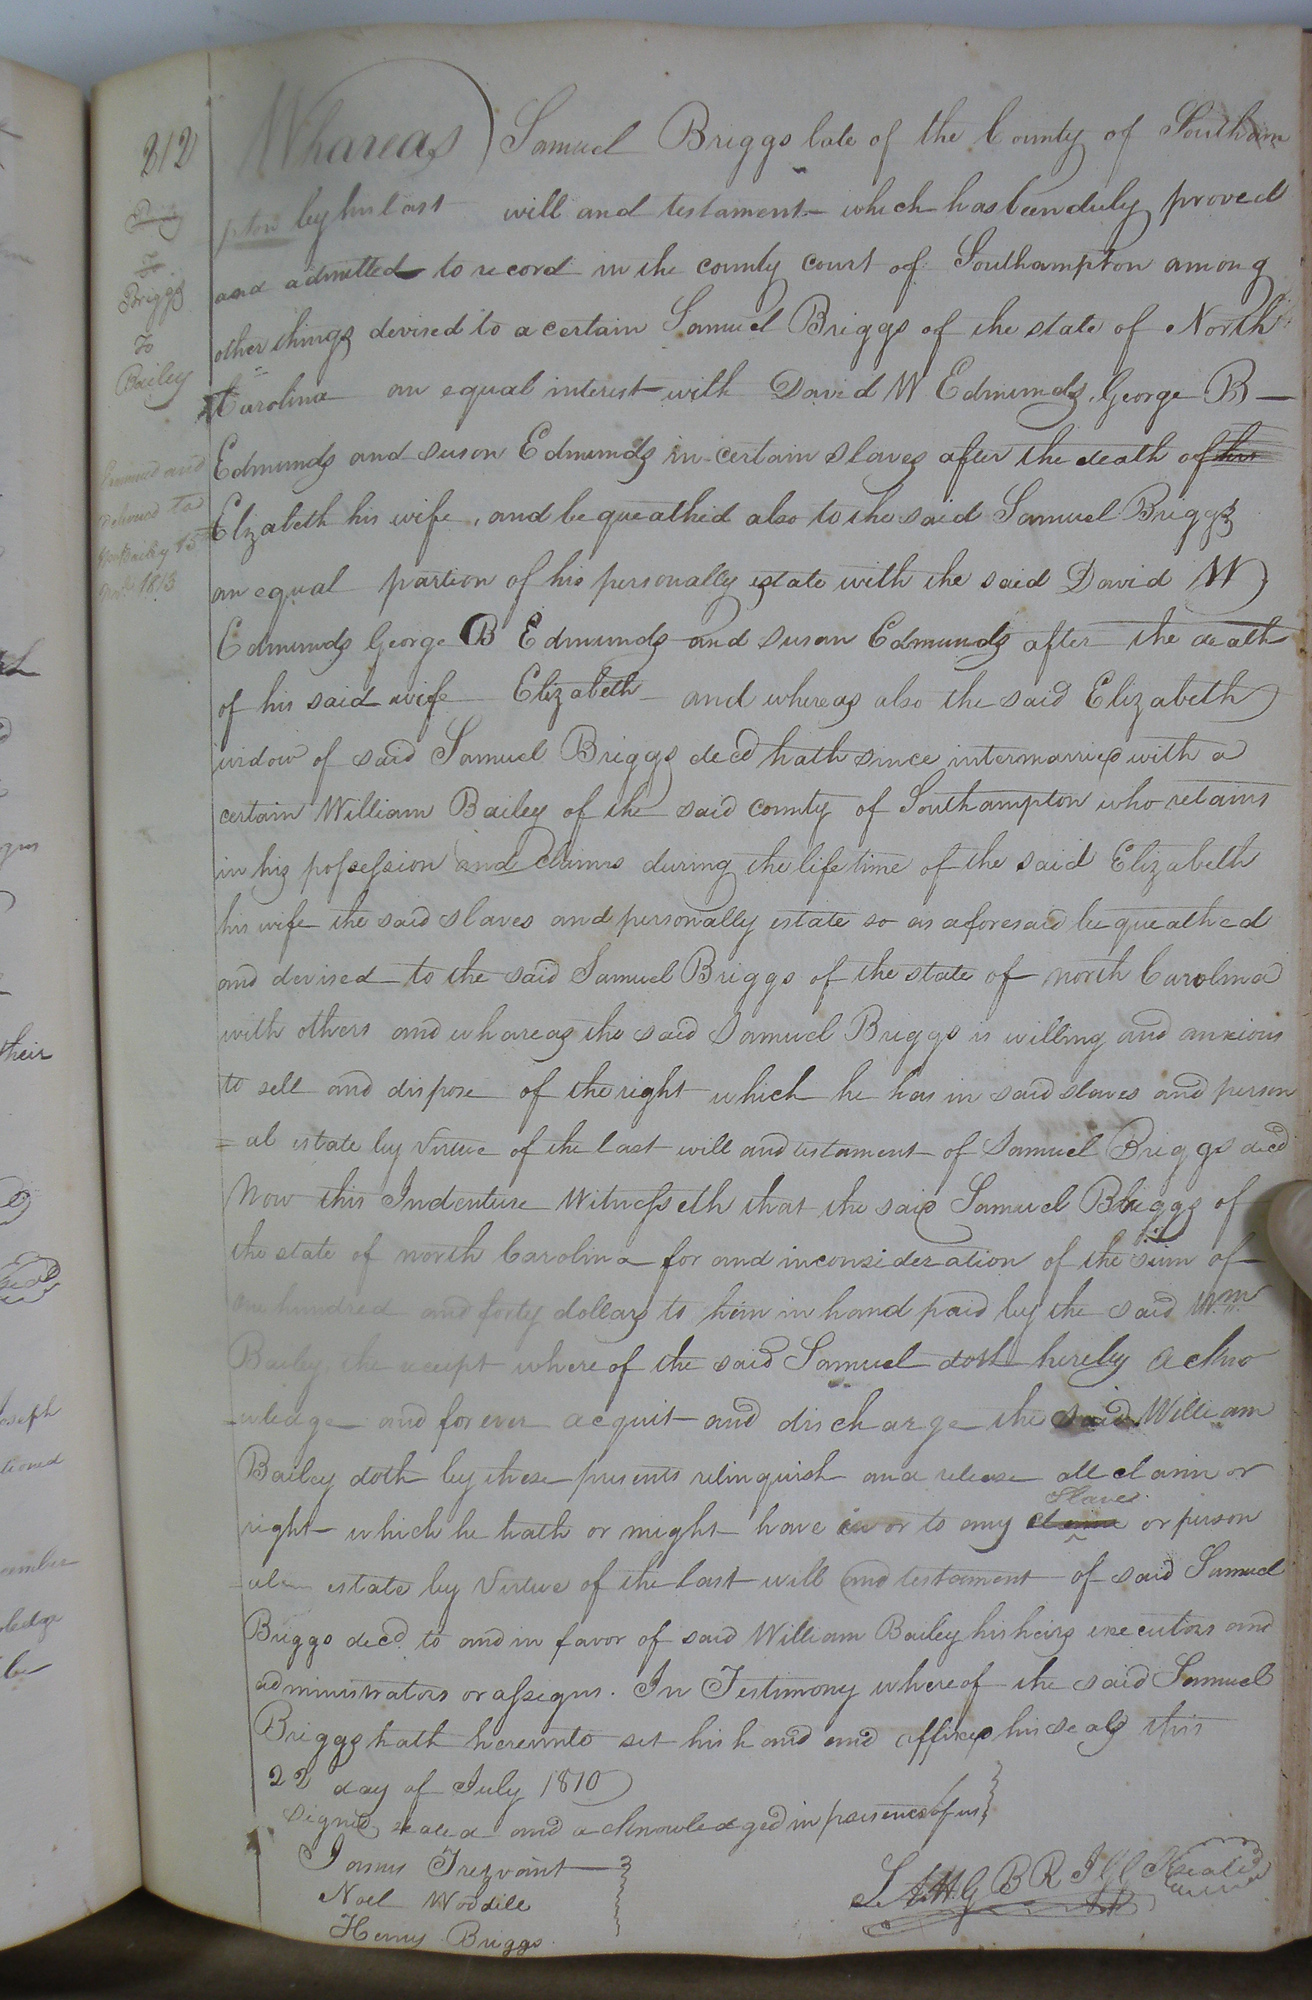 212
Briggs
To
Bailey
Examined and
Delivered to
Wm Bailey 15th
1813
Whareas Samuel Briggs late of the County of Southam
pton by his last will and testament which has been duly proved
and admitted to record in the county court of Southampton among
other things devised to a certain Samuel Briggs of the state of North
Carolina an equal interest with David W Edmunds, George B
Edmunds and Suson Edmunds in certain slaves after the death of his
Elizabeth his wife, and bequeathed also to the said Samuel Briggs
an equal partion of his personally estate with the said David W
Edmunds George B Edmunds and Susan Edmunds after the death
of his said wife Elizabeth and whereas also the said Elizabeth
widow of said Samuel Briggs decd hath since intermarried with a
certain William Bailey of the said county of Southampton who retains
in his possession and claims during the life time of the said Elizabeth
his wife the said slaves and personally estate so as aforesaid bequeathed
and devised to the said Samuel Briggs of the state of north Carolina
with others and whareas the said Samuel Briggs is willing and anxious
to sell and dispose of the right which he has in said slaves and person
=al estate by virtue of the last will and testament of Samuel Briggs decd
Now this Indenture Witnesseth that the said Samuel Briggs of
the state of north Carolina for and inconsideration of the sum of
one hundred and forty dollars to him in hand paid by the said Wm
Bailey the receipt whereof the said Samuel doth hereby ackno
-wledge and forever acquit and discharge the said William
Bailey doth by these presents relinquish and release all claim or
Slaves
right which he hath or might have in or to any claime or person
-al estate by virtue of the last will and testament of said Samuel
Briggs decd. to and in favor of said William Bailey his heirs executors and
administrators or assigns. In Testimony whereof the said Samuel
Briggs hath hereunto set his hand and affixed his seal this
22 day of July 1810
Signed sealed and acknowledged in presence of us
James Trezvant
Noel Woddile
Henry Briggs